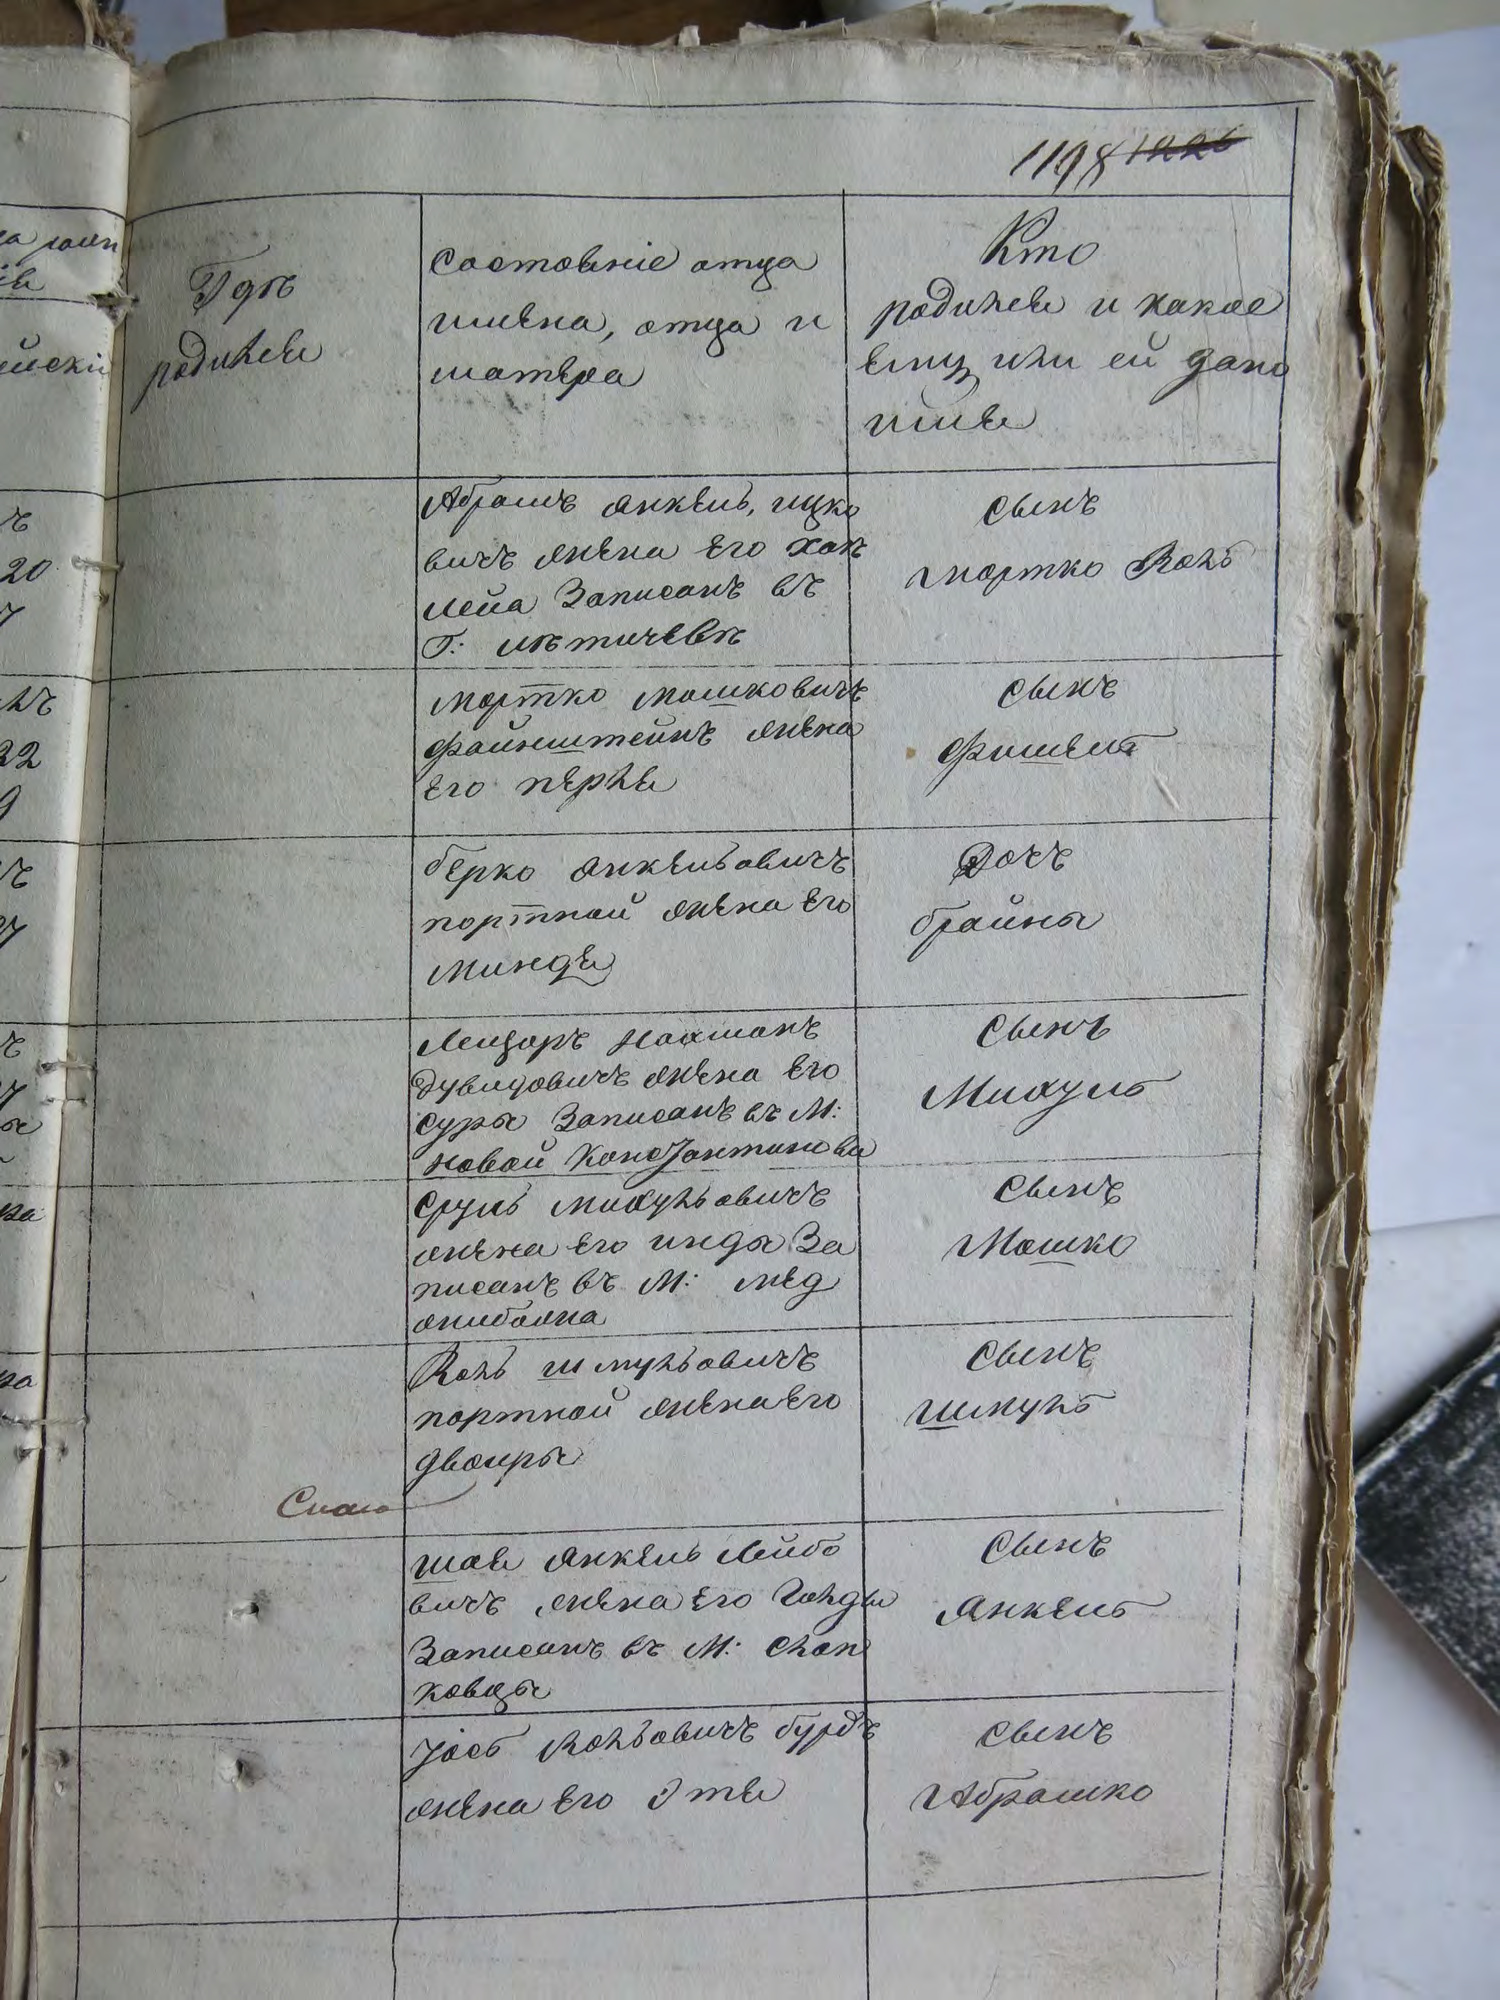 1198 1226
Гдѣ
родилсе
Состовніе отца
имена, отца и
матера
Кто
родилсе и какое
ему или ей дано
име
Абрамъ Янкель, Ицко
вичъ жена его Хая
Лейа Записанъ въ
Г: Летичевѣ
сынъ
Мортко Іоль
Мортко Мошковичъ
Файнштейнъ жена
его Перле
сынъ
Фишель
Берко Янкельовичъ
портной жена его
Минде
Дочъ
Брайны
Лейзоръ Нахманъ
Дувидовичъ жена его
Суры Записанъ въ М:
Новой Константинове
сынъ
Михуль
Сруль Михульовичъ
жена его Инды За
писанъ въ М: Мед
жибожа
сынъ
Мошко
Іоль Шмульовичъ
портной жена его
Двойры
сынъ
Шмуль
Шае Янкель Лейбо
вичъ жена его Гольды
Записанъ въ М: Сман
ковцы
сынъ
Янкель
Іось Іольовичъ Бурдъ
жена его Эте
сынъ
Абрашко